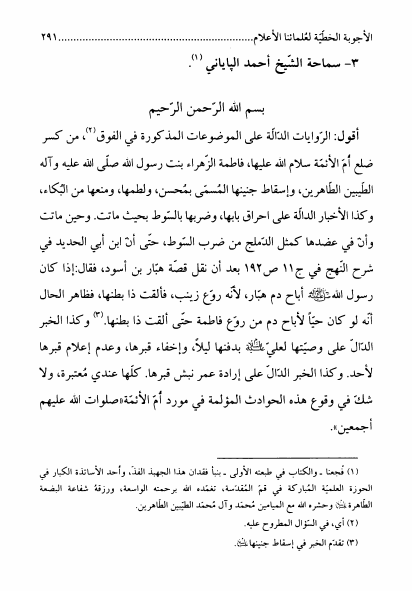 الأجوبة الخطّيّة لعُلمائنا الأعلام ........................................................ ٢٩١
٣- سماحة الشّيخ أحمد الپاياني (١).
بسم الله الرّحمن الرّحيم
أقول: الرّوايات الدّالّة على الموضوعات المذكورة في الفوق(٢)، من كسر
ضلع أمّ الأئمّة سلام الله عليها، فاطمة الزّهراء بنت رسول الله صلّى الله عليه وآله
الطّيبين الطّاهرين، وإسقاط جنينها المُسمّى بمُحسن، ولطمها، ومنعها من البُكاء،
وكذا الأخبار الدالّة على احراق بابها، وضربها بالسّوط بحيث ماتت. وحين ماتت
وأنّ في عضدها كمثل الدّملج من ضرب السّوط، حتّى أنّ ابن أبي الحديد في
شرح النّهج في ج١١ ص١٩٢ بعد أن نقل قصّة هبّار بن أسود، فقال:إذا كان
رسول الله ﷺ أباح دم هبّار، لأنّه روّع زينب، فألقت ذا بطنها، فظاهر الحال
أنّه لو كان حيّاً لأباح دم من روّع فاطمة حتّى ألقت ذا بطنها.(٣) وكذا الخبر
الدّالّ على وصيّتها لعليّ عليه السلام بدفنها ليلاً، وإخفاء قبرها، وعدم إعلام قبرها
لأحد. وكذا الخبر الدّالّ على إرادة عمر نبش قبرها. كلّها عندي مُعتبرة، ولا
شكّ في وقوع هذه الحوادث المؤلمة في مورد أمّ الأئمّة«صلوات الله عليهم
أجمعين».
(١) فُجعنا ـ والكتاب في طبعته الأولى ـ بنبأ فقدان هذا الجهبذ الفذّ، وأحد الأساتذة الكبار في
الحوزة العلميّة المُباركة في قمّ المُقدّسة، تغمّده الله برحمته الواسعة، ورزقهُ شفاعة البضعة
الطّاهرة وحشره الله مع الميامين مُحمّد وآل مُحمّد الطّيّبين الطّاهرين.
(٢) أي، في السّؤال المطروح عليه.
(٣) تقدّم الخبر في إسقاط جنينها.